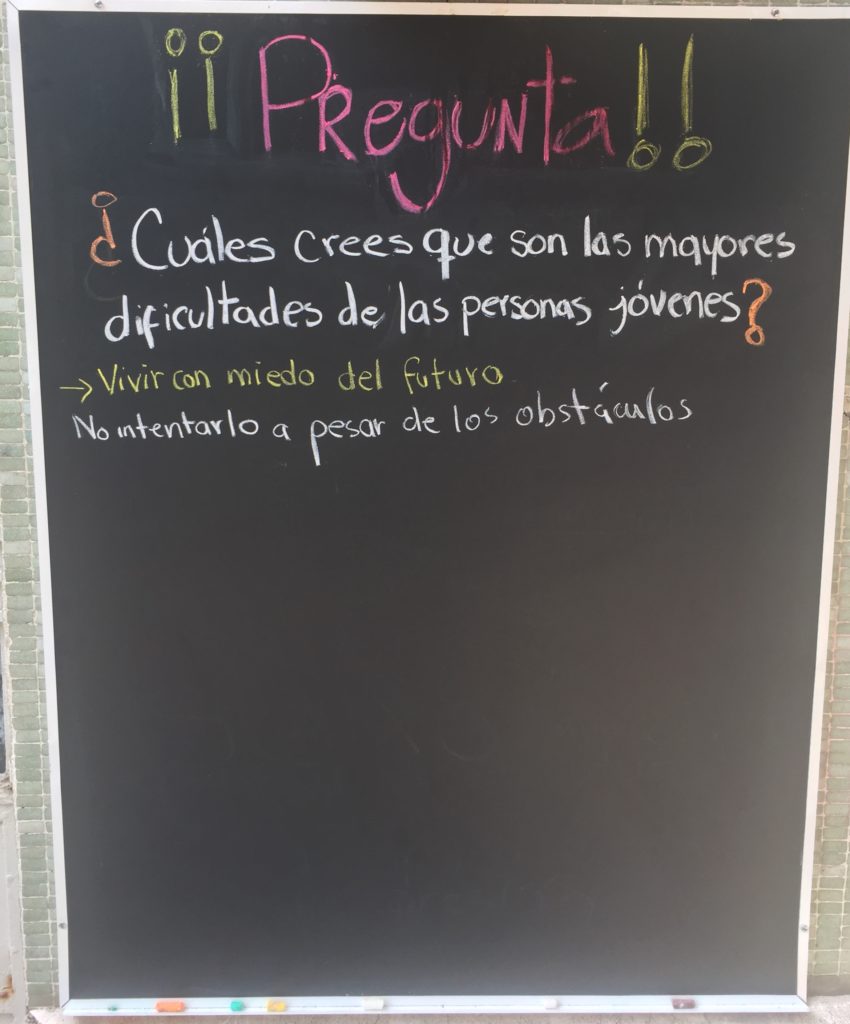 ¡¡Pregunta!!
¿Cuáles crees que son las mayores
dificultades de las personas jóvenes?
→ Vivir con miedo del futuro
No intentarlo a pesar de los obstáculos